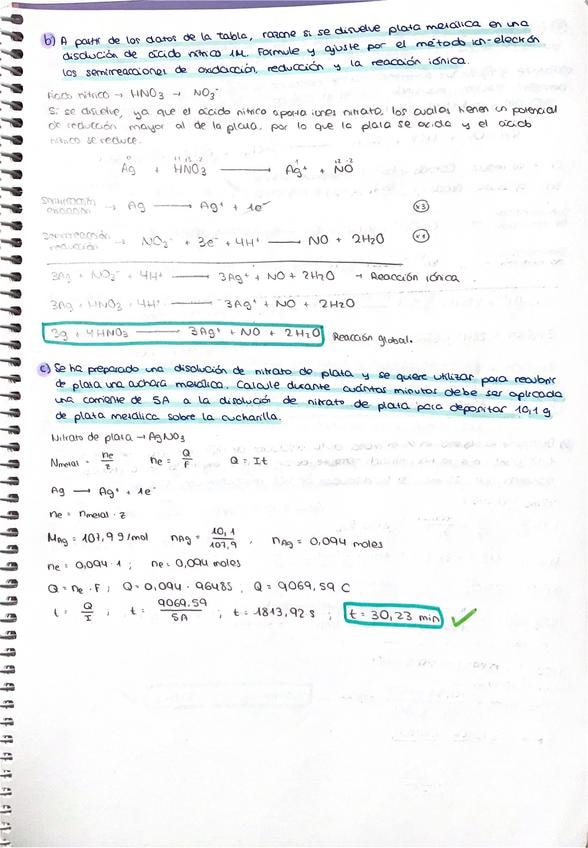 b) A partir de los datos de la tabla, razone si se disuelve plata metálica en una
disolución de ácido nítrico 1M. Formule y ajuste por el método ion-electrón
las semirreacciones de oxidación, reducción y la reacción iónica.
Ácido nítrico → HNO3 → NO3-
Si se disuelve, ya que el ácido nítrico aporta iones nitrato, los cuales tienen un potencial
de reducción mayor al de la plata, por lo que la plata se oxida y el ácido
nítrico se reduce.
0 +1 +5 -2 +1 +2 -2
Ag + HNO3 → Ag+ + NO
semirreacción oxidación → Ag → Ag+ + 1e- x3
semirreacción reducción → NO3- + 3e- + 4H+ → NO + 2H2O x1
3Ag + NO3- + 4H+ → 3Ag+ + NO + 2H2O → Reacción iónica
3Ag + HNO3 + 4H+ → 3Ag+ + NO + 2H2O
3g + 4HNO3 → 3Ag+ + NO + 2H2O Reacción global.
c) Se ha preparado una disolución de nitrato de plata y se quiere utilizar para recubrir
de plata una cuchara metálica. Calcule durante cuántos minutos debe ser aplicada
una corriente de 5A a la disolución de nitrato de plata para depositar 10,1 g
de plata metálica sobre la cucharilla.
Nitrato de plata → AgNO3
nmetal = ne/z ne = Q/F Q = It
Ag → Ag+ + 1e-
ne = nmetal · z
MAg = 107,9 g/mol nAg = 10,1/107,9 , nAg = 0,094 moles
ne = 0,094 · 1 ; ne = 0,094 moles
Q = ne · F ; Q = 0,094 · 96485 ; Q = 9069,59 C
t = Q/I ; t = 9069.59/5A ; t = 1813,92 s ; t = 30,23 min ✓